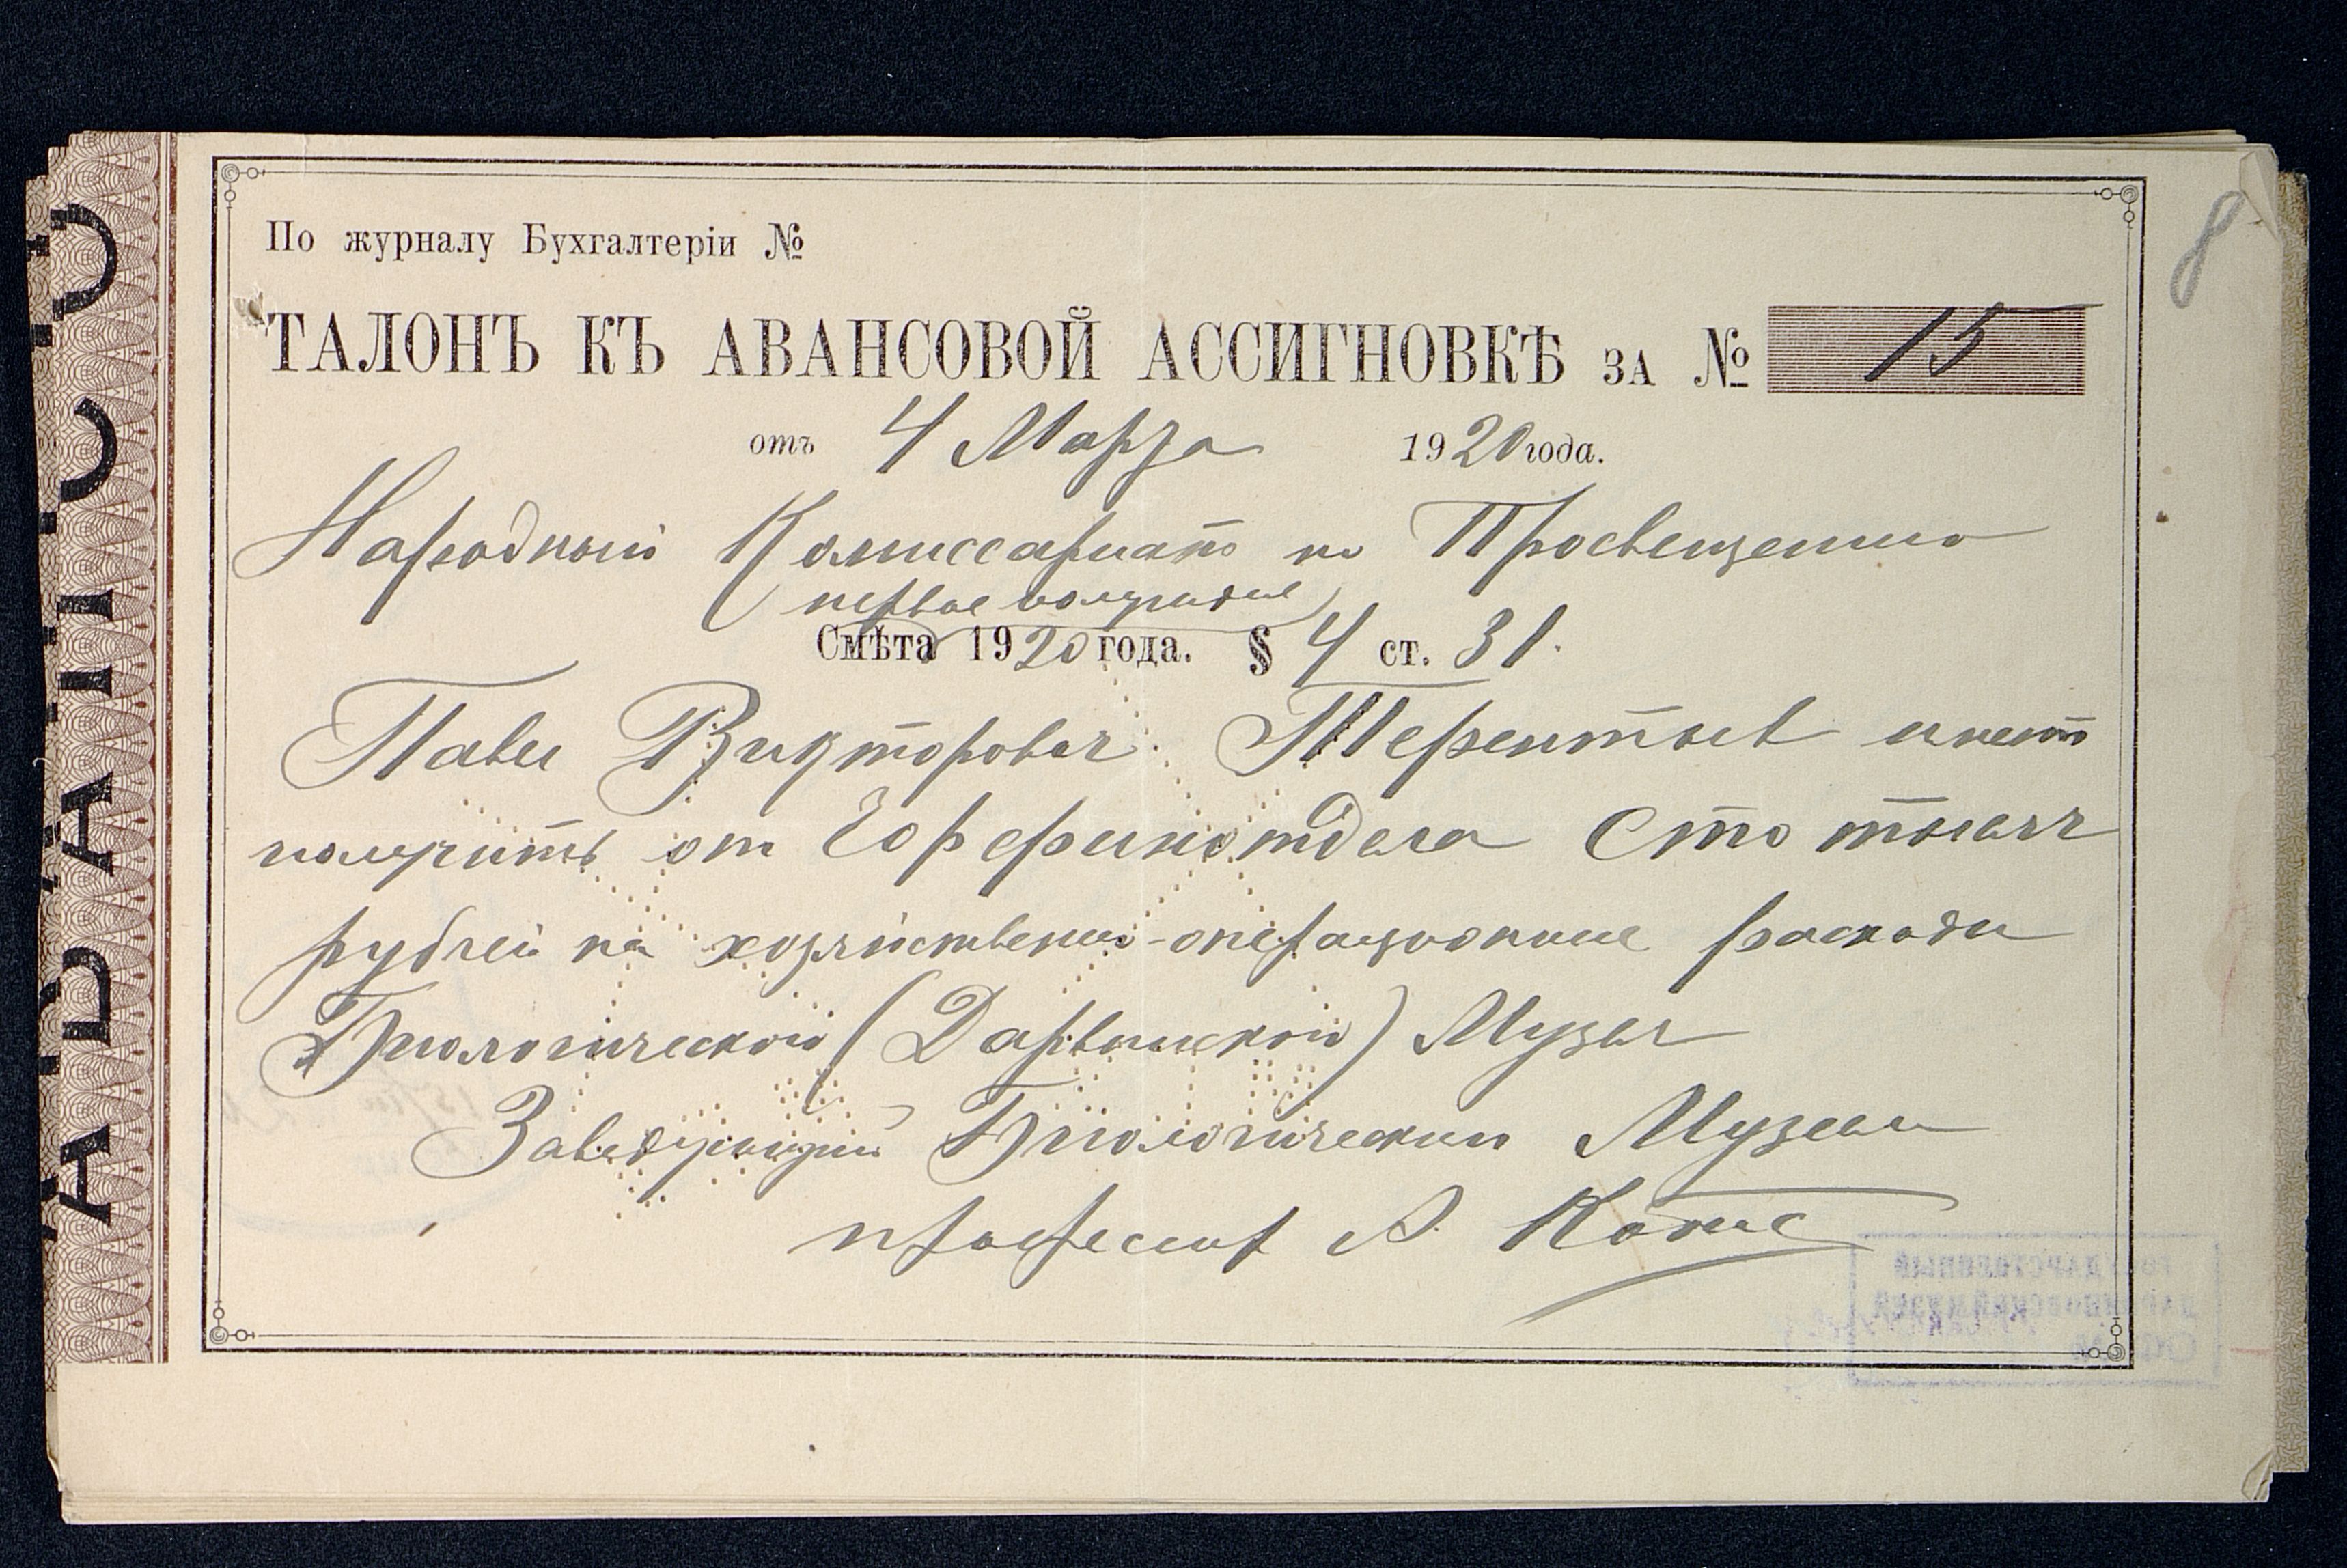 8
По журналу Бухгалтеріи №
ТАЛОНЪ КЪ АВАНСОВОЙ АССИГНОВКѢ ЗА № 15
отъ 4 Марта 1920 года.
Народный Комиссариат по Просвещению
(первое полугодие)
Смѣта 1920 года. § 4 ст. 31.
Павел Викторович Терентьев имеет
получить от Горфинотдела Сто тысяч
рублей на хозяйственно-операционные расходы
Биологической (Дарвинской) Музея
Заведующий Биологическим Музеем
профессор А. Котс
ГОСУДАРСТВЕННЫЙ
ДАРВИНОВСКИЙ МУЗЕЙ